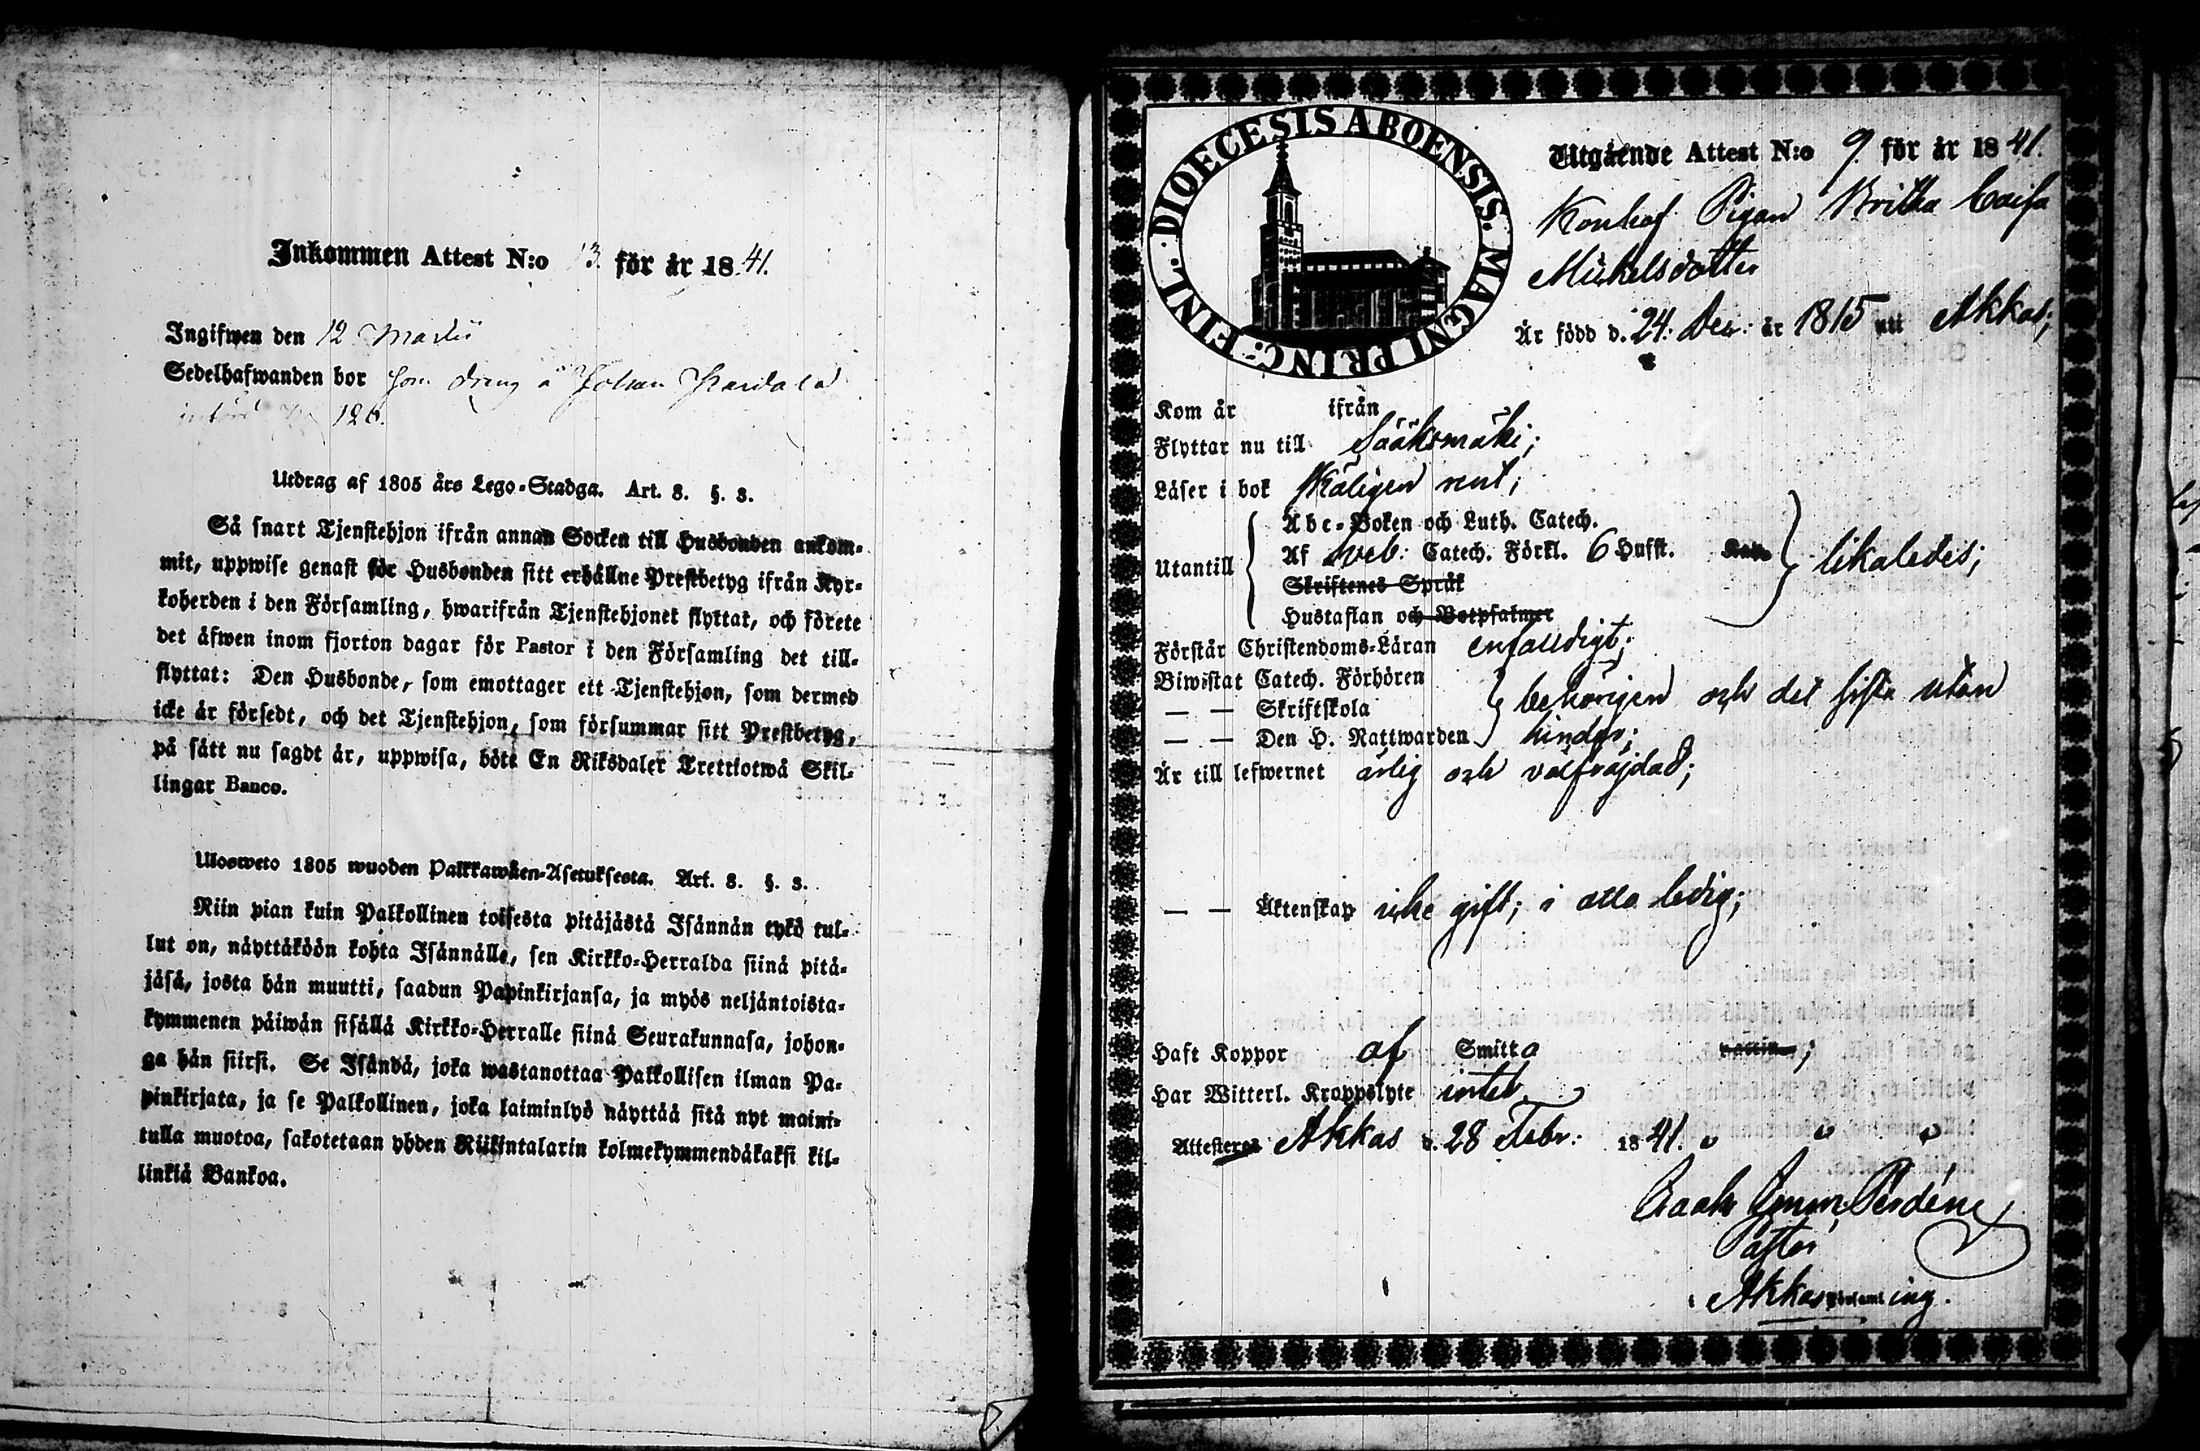 Inkommen Attest N:o 13. för år 1841.
Ingifwen den 12 Martii
Sedelhafwanden bor som dräng å Johan
126.
Utdrag af 1805 års Lego-Stadga. Art. 8. §. 3.
Så snart Tjenstehjon ifrån annan Socken till Husbonden ankom-
mit, uppwise genast för Husbonden sitt erhållne Prestbetyg ifrån Kyr-
koherden i den Församling, hwarifrån Tjenstehjonet flyttat, och förete
det äfwen inom fjorton dagar för Pastor i den Församling det till-
flyttat: Den Husbonde, som emottager ett Tjenstehjon, som dermed
icke är försedt, och det Tjenstehjon, som försummar sitt Prestbetyg,
på sätt nu sagdt är, uppwisa, böte En Riksdaler Trettiotwå Skil-
lingar Banco.
Ulosweto 1805 wuoden Palkkawäen-Asetuksesta. Art. 8. §. 3.
Niin pian kuin Palkollinen toisesta pitäjästä Isännän tykö tul-
lut on, näyttäköön kohta Isännälle, sen Kirkko-Herralda siinä pitä-
jäsä, josta hän muutti, saadun Papinkirjansa, ja myös neljäntoista-
kymmenen päiwän sisällä Kirkko-Herralle siinä Seurakunnasa, johon-
ga hän siirsi. Se Isändä, joka wastanottaa Palkollisen ilman Pa-
pinkirjata, ja se Palkollinen, joka laiminlyö näyttää sitä nyt maini-
tulla muotoa, sakotetaan yhden Riikintalarin kolmekymmendäkaksi kil-
linkiä Bankoa.
DIOECESIS ABOENSIS. MAGNI PRINC: FINL.
Utgående Attest N:o 9. för år 1841.
Pigan Britta Caisa
Michelsdotter
Är född d. 24. Dec: år 1815 uti Akkas;
Kom år ifrån
Flyttar nu till Sääksmäki;
Läser i bok skäligen rent;
Utantill
Abc-Boken och Luth. Catech.
Af Sveb: Catech. Förkl. 6 Hufst.
Skriftenes Språk
Hustaflan och Botpsalmer
likaledes;
Förstår Christendoms-Läran enfaldigt;
Biwistat Catech. Förhören
— — Skriftskola
— — Den H. Nattwarden
behörigen och det sista utan
hinder;
Är till lefwernet ärlig och välfräjdad;
— — Äktenskap icke gift; i allo ledig;
Haft Koppor af Smitta ;
Har Witterl. Kroppslyte intet
Attesteras Akkas d. 28 Febr: 1841.
Pastor
Akkas Församling.